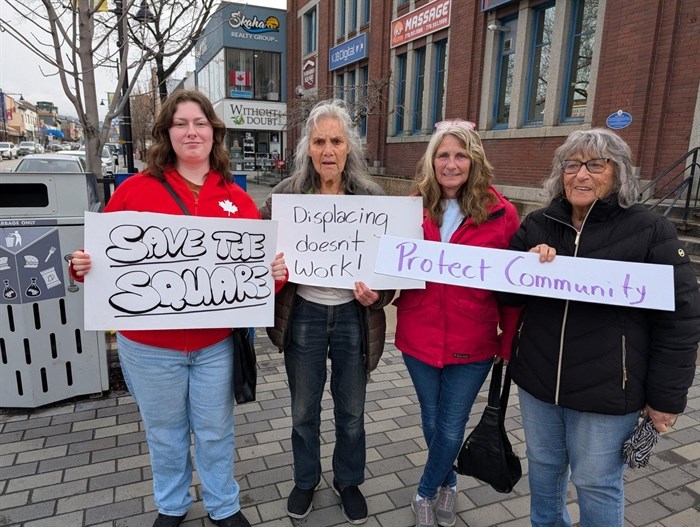 Skaha
REALTY GROUP
WITHOUT
DOUBT
KJB Digital
MASSAGE
GARBAGE ONLY
SAVE THE
SQUARE
Displacing
doesn't
work!
Protect Community